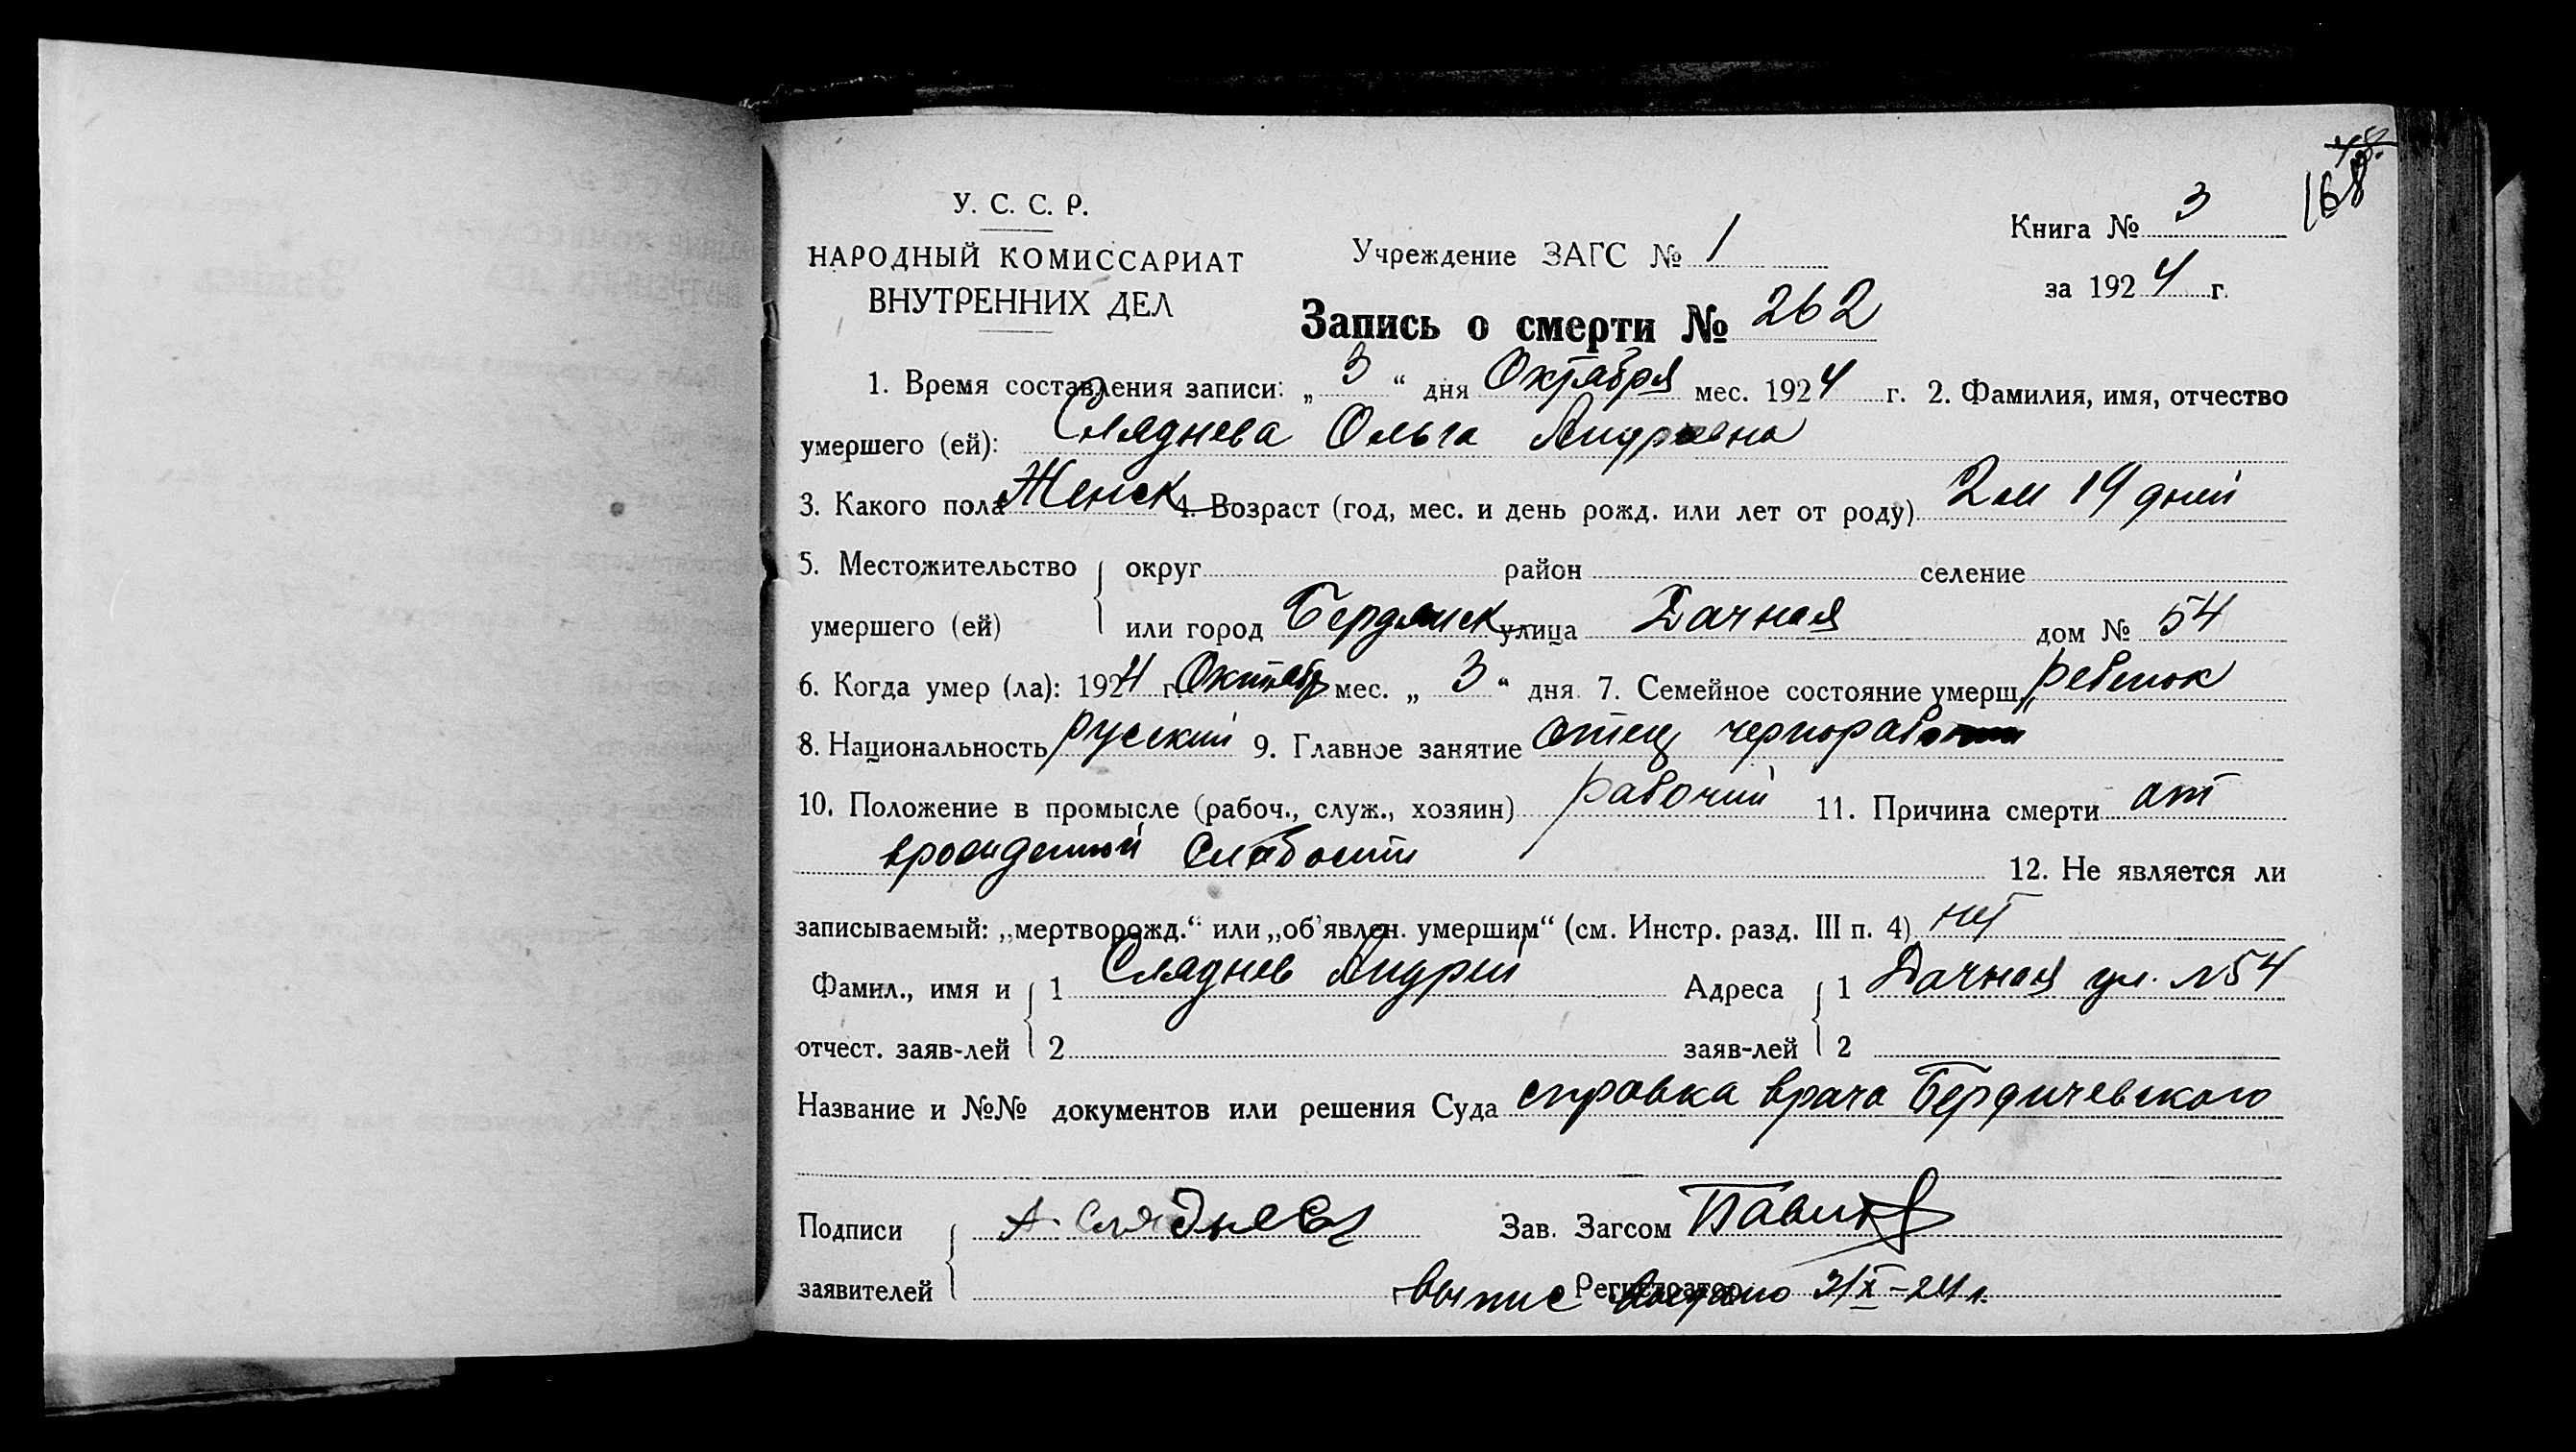 168
У. С. С. Р.
НАРОДНЫЙ КОМИССАРИАТ
ВНУТРЕННИХ ДЕЛ
Учреждение ЗАГС № 1
Книга № 3
за 1924 г.
Запись о смерти № 262
1. Время составления записи: „ 3 “ дня Октября мес. 1924 г. 2. Фамилия, имя, отчество
умершего (ей): Сляднева Ольга Андреевна
3. Какого пола Женск 4. Возраст (год, мес. и день рожд. или лет от роду) 2 м 19 дней
5. Местожительство округ район селение
умершего (ей) или город Бердянск улица Дачная дом № 54
6. Когда умер (ла): 1924 г. Октябр мес. „ 3 “ дня 7. Семейное состояние умерш. ребенок
8. Национальность русский 9. Главное занятие отец чернораб
10. Положение в промысле (рабоч., служ., хозяин) рабочий 11. Причина смерти от
врожденной слабости 12. Не является ли
записываемый: „мертворожд.“ или „об'явлен. умершим“ (см. Инстр. разд. III п. 4) нет
Фамил., имя и 1 Сляднев Андрей Адреса 1 Дачная ул. № 54
отчест. заяв-лей 2 заяв-лей 2
Название и №№ документов или решения Суда справка врача Бердичевского
Подписи А Сляднев Зав. Загсом
заявителей Регистратор
выпис выдано 3/X-24 г.